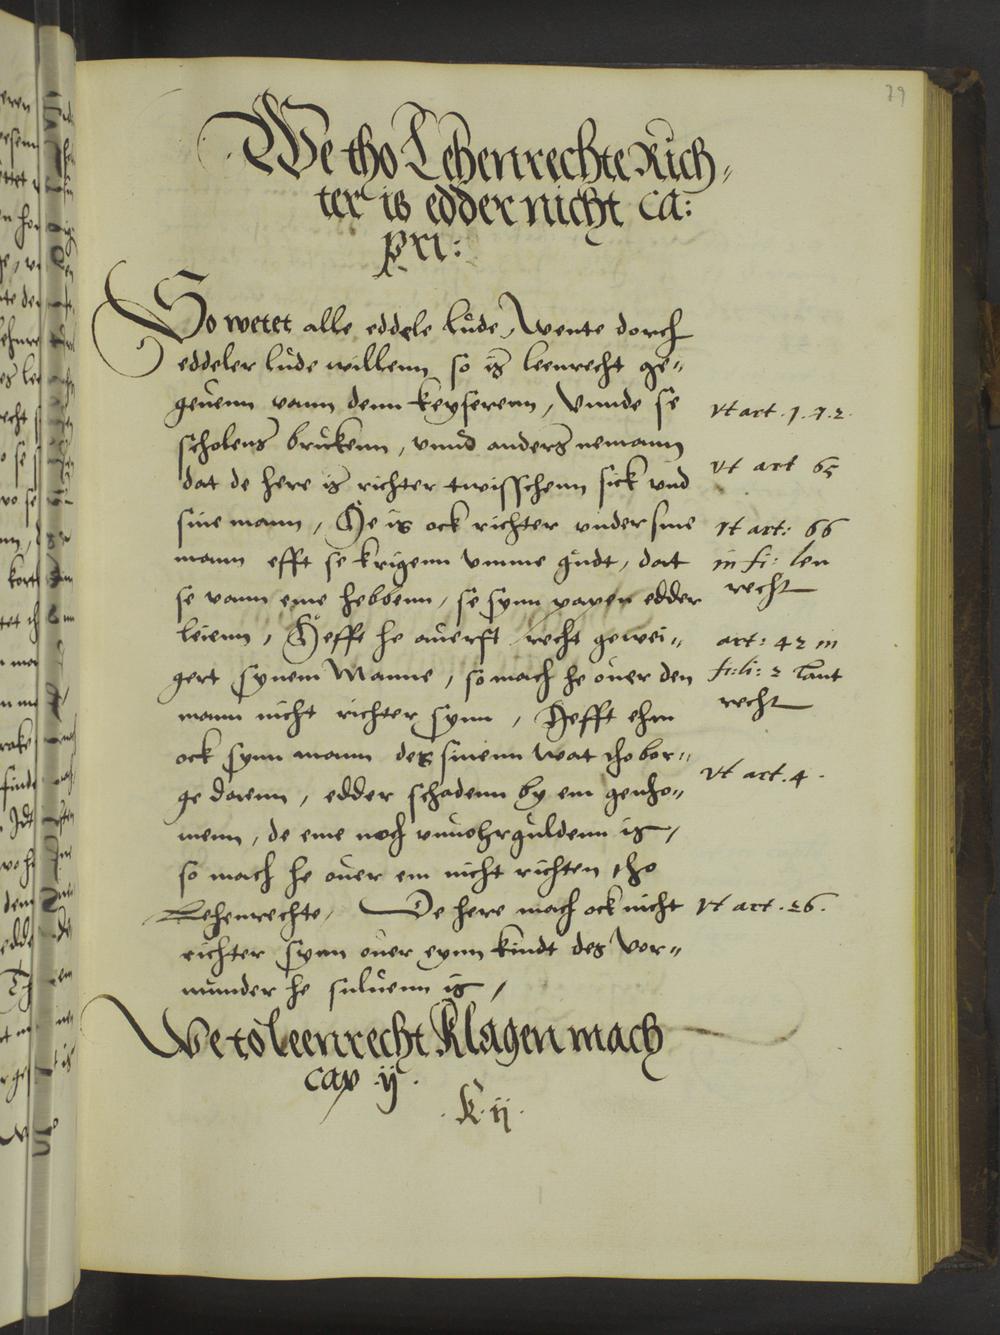 79
We tho Lehenrechte Rich,
ter is edder nicht ca:
pri:
So wetet alle eddele lude, Wente dorch
eddeler lude willenn so is leenrecht ge„
geuenn vann denn keyserenn, Vnnde se
scholens brukenn, vnnd anders nemann
dat de here is richter twisschenn sick vnd
sine mann, He is ock richter vnder sine
mann efft se krigenn vmme gudt, dat
se vann eme hebbenn, se synn papen edder
leienn, Hefft he auerst recht gewei„
gert synem Manne, so mach he ouer den
mann nicht richter synn, Hefft ehm
ock synn mann des sinenn wat tho bor„
ge daenn, edder schadenn by em genho„
menn, de eme noch vnuohrguldenn is,
so mach he ouer em nicht richten tho
Lehenrechte, De here mach ock nicht
richter synn ouer eynn kindt des Vor„
munder he suluenn is,
vt art. 1. 4. 2.
vt art 65
vt art: 66
in fi: len
recht
art: 42 in
fi: li: 2 Lant
recht
vt art. 4.
vt art. 26.
We to leenrecht Klagen mach
cap ij.
K ij.